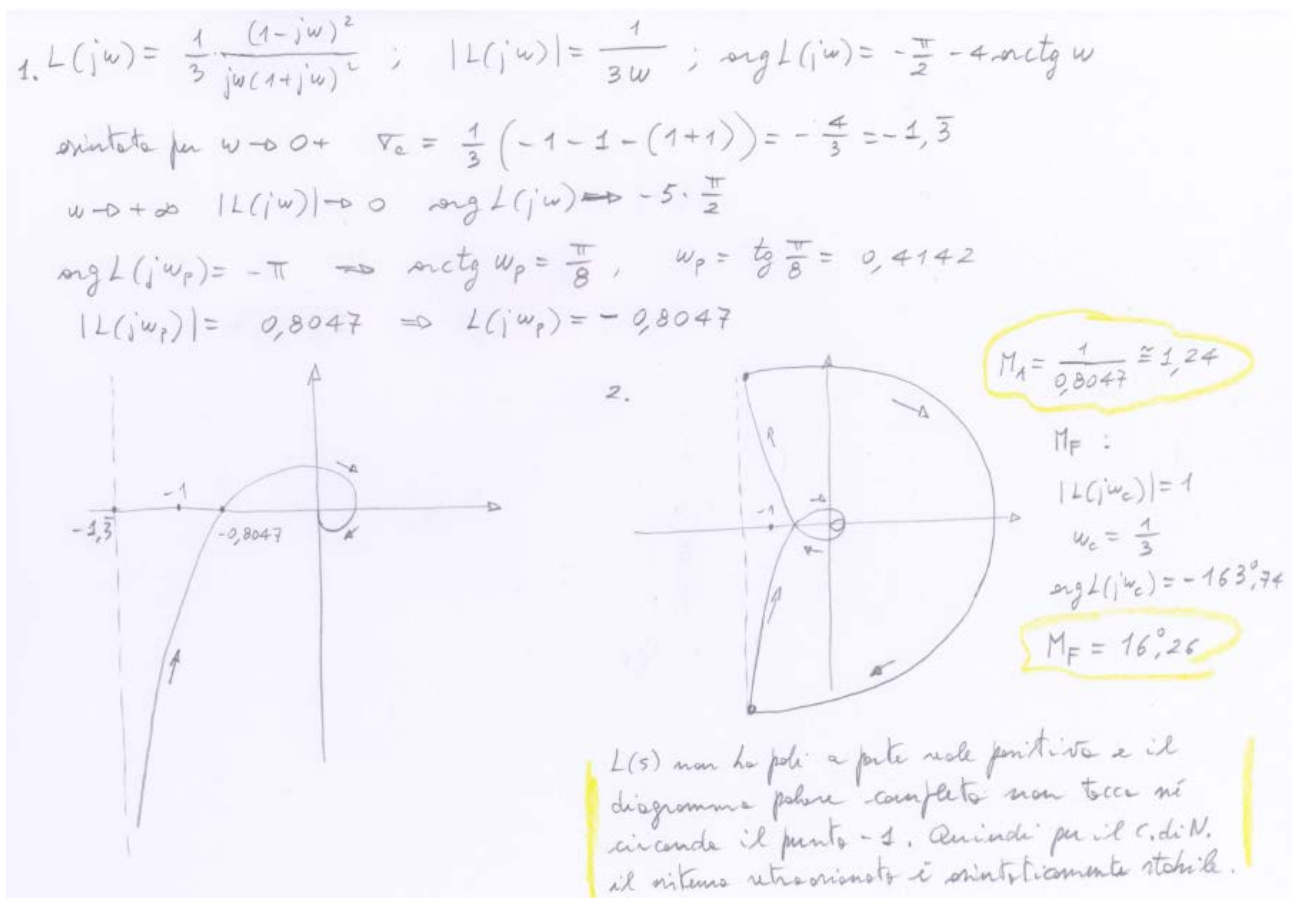 1. L(jω) = 1/3 · (1-jω)² / jω(1+jω)² ; |L(jω)| = 1/3ω ; arg L(jω) = -π/2 - 4 arctg ω
asintoto per ω→0+ σa = 1/3 (-1-1-(1+1)) = -4/3 = -1,3̅
ω→+∞ |L(jω)|→0 arg L(jω)⇒ -5·π/2
arg L(jωp) = -π ⇒ arctg ωp = π/8 , ωp = tg π/8 = 0,4142
|L(jωp)| = 0,8047 ⇒ L(jωp) = -0,8047
-1,3̅
-1
-0,8047
2.
R
-1
M_A = 1/0,8047 ≅ 1,24
M_F :
|L(jωc)| = 1
ωc = 1/3
arg L(jωc) = -163°,74
M_F = 16°,26
L(s) non ha poli a parte reale positiva e il
diagramma polare completo non tocca né
circonda il punto -1. Quindi per il C.di N.
il sistema retroazionato è asintoticamente stabile.